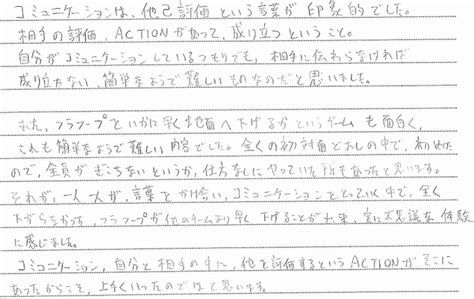 コミュニケーションは、他己評価という言葉が印象的でした。
相手の評価、ACTIONがあって、成り立つということ。
自分がコミュニケーションしているつもりでも、相手に伝わらなければ
成り立たない、簡単なようで難しいものなのだと思いました。
また、フラフープをいかに早く地面へ下げるかというゲームも面白く、
これも簡単なようで難しい内容でした。全くの初対面どおしの中で、初めた
ので、全員がぎこちないというか、仕方なしにやっていた所もあったと思います。
それが、一人一人が、言葉をかけ合い、コミュニケーションをとっていく中で、全く
下がらなかった、フラフープが他のチームより早く下げることが出来、実に不思議な体験
に感じました。
コミュニケーション、自分と相手の中に、他を評価するというACTIONがそこに
あったからこそ、上手くいったのではと思います。